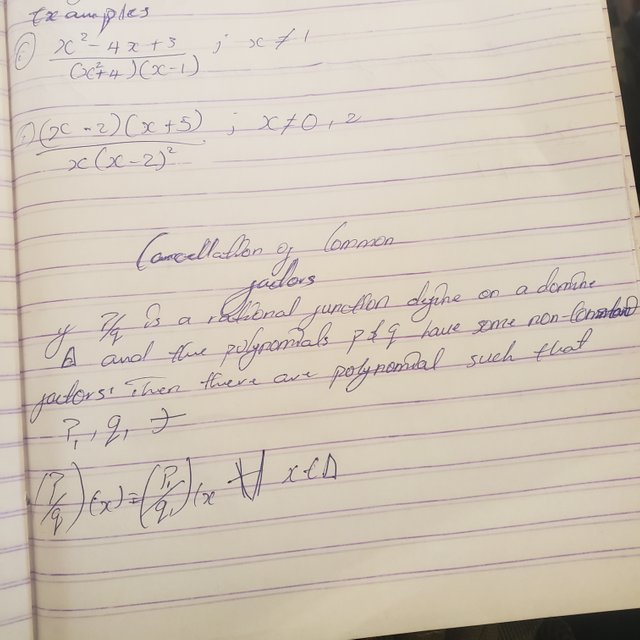 Examples
x² - 4x + 3 / (x²+4)(x-1) ; x ≠ 1
(x - 2)(x + 5) / x(x-2)² ; x ≠ 0, 2
Cancellation of Common
factors
If P/q is a rational function define on a domine
Δ and the polynomials p & q have some non-Constant
factors. Then there are polynomial such that
P₁, q₁ ∋
(P/q)(x) = (P₁/q₁)(x ∀ x ∈ Δ